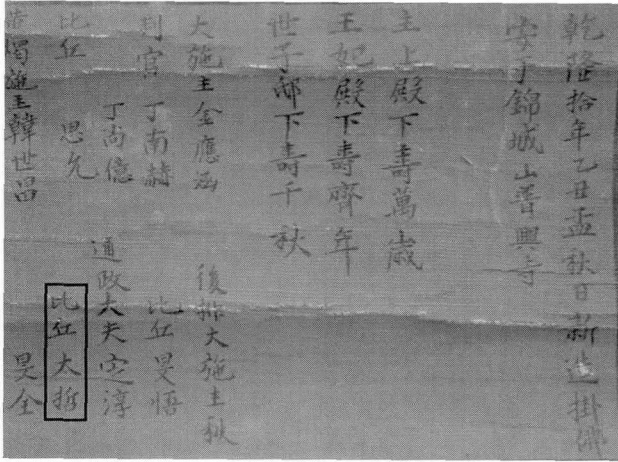 乾隆拾年乙丑孟秋日新造掛佛
安于錦城山普興寺
主上殿下壽萬歲
王妃殿下壽齊年
世子邸下壽千秋
大施主金應涵
後排大施主秋
判官 丁南繡
比丘旻悟
丁尚億
通政大夫定淳
比丘 思允
比丘太哲
燭施主韓世昌
旻全